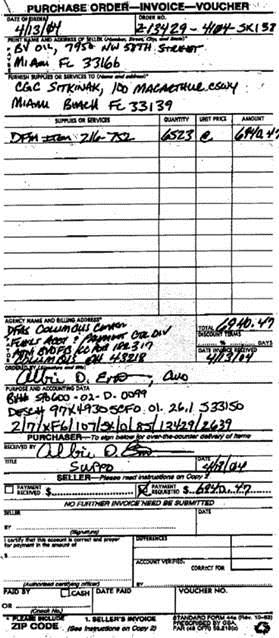 PURCHASE ORDER—INVOICE—VOUCHER
DATE OF ORDER ORDER NO.
4/13/04 Z-13429-4104-SK138
PRINT NAME AND ADDRESS OF SELLER (Number, Street, City, and State)*
BV OIL, 7950 NW 58TH STREET
MIAMI FL 33166
FURNISH SUPPLIES OR SERVICES TO (Name and address)*
CGC SITKINAK, 100 MACARTHUR CSWY
MIAMI BEACH FL 33139
SUPPLIES OR SERVICES QUANTITY UNIT PRICE AMOUNT
DFM 216-752 6523 @ 6940.47
AGENCY NAME AND BILLING ADDRESS*
DFAS COLUMBUS CENTER
FUELS ACCT & PAYMENT DIV
ATTN BVDFB PO BOX 182317
COLUMBUS OH 43218
TOTAL 6940.47
DISCOUNT TERMS
% DAYS
DATE INVOICE RECEIVED
4/13/04
ORDERED BY (Signature and title)
CWO
PURPOSE AND ACCOUNTING DATA
SP0600-02-D-0099
97X4930.5CF0.01.26.1 S33150
2/7/XF6/107/SK/0/85/13429/2639
PURCHASER—To sign below for over-the-counter delivery of items
RECEIVED BY
TITLE SUPPO DATE 4/13/04
SELLER—Please read instructions on Copy 2
PAYMENT RECEIVED $ PAYMENT REQUESTED $ 6940.47
NO FURTHER INVOICE NEED BE SUBMITTED
SELLER DATE
BY
(Signature)
I certify that this account is correct and proper for payment in the amount of
$
DIFFERENCES
ACCOUNT VERIFIED;
CORRECT FOR
(Authorized certifying officer) BY
PAID BY CASH DATE PAID VOUCHER NO.
OR
(Check No.)
* PLEASE INCLUDE ZIP CODE
1. SELLER'S INVOICE
(See Instructions on Copy 2)
STANDARD FORM 44a (Rev. 10-83)
PRESCRIBED BY GSA,
FAR (48 CFR) 53.213(c)